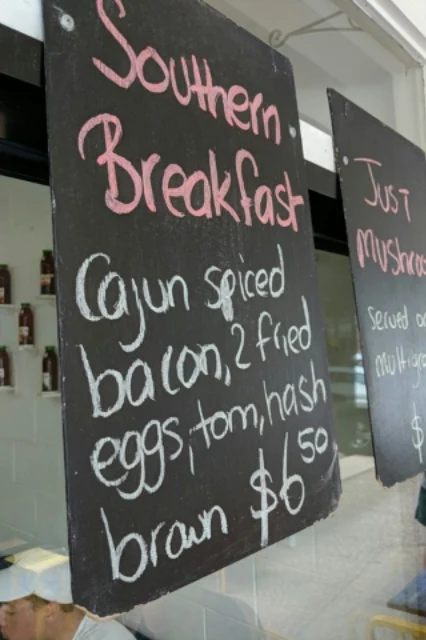 Southern
Breakfast
Cajun spiced
bacon, 2 fried
eggs, tom, hash
brown $6 50
Just
served
$